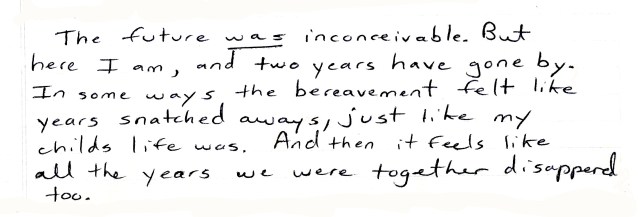 The future was inconceivable. But
here I am, and two years have gone by.
In some ways the bereavement felt like
years snatched aways, just like my
childs life was. And then it feels like
all the years we were together disappered
too.